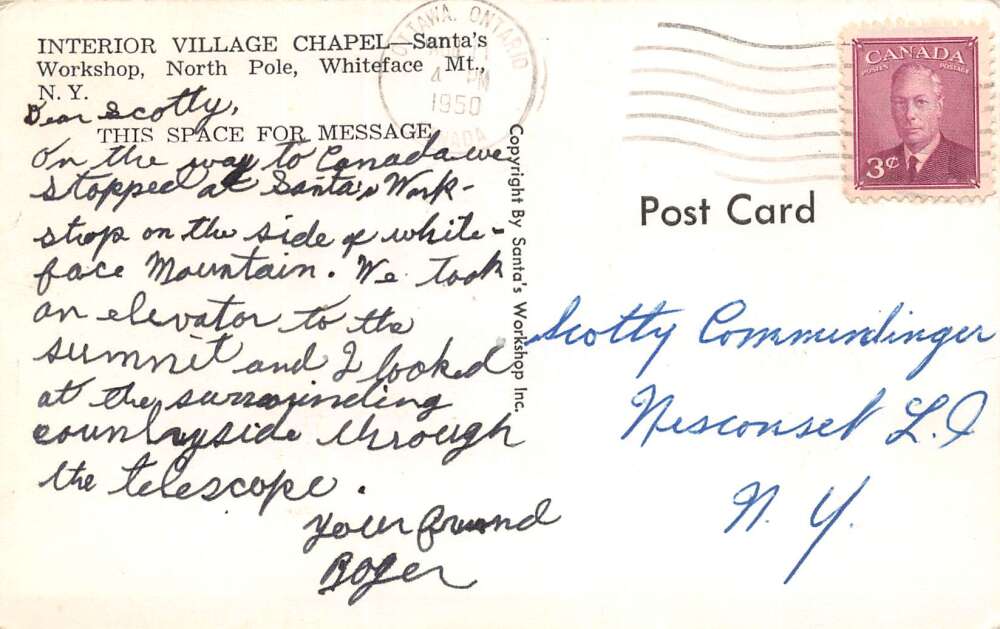 INTERIOR VILLAGE CHAPEL—Santa's
Workshop, North Pole, Whiteface Mt.,
N. Y.
Dear Scotty,
THIS SPACE FOR MESSAGE
On the way to Canada we
stopped at Santa's Work-
shop on the side of white-
face Mountain. We took
an elevator to the
summit and I looked
at the surrounding
countryside through
the telescope.
Your friend
Roger
Copyright By Santa's Workshop Inc.
OTTAWA, ONTARIO
4 PM
1950
CANADA
CANADA
POSTES POSTAGE
3¢
Post Card
Scotty Commundinger
Nesconset L.I
N. Y.